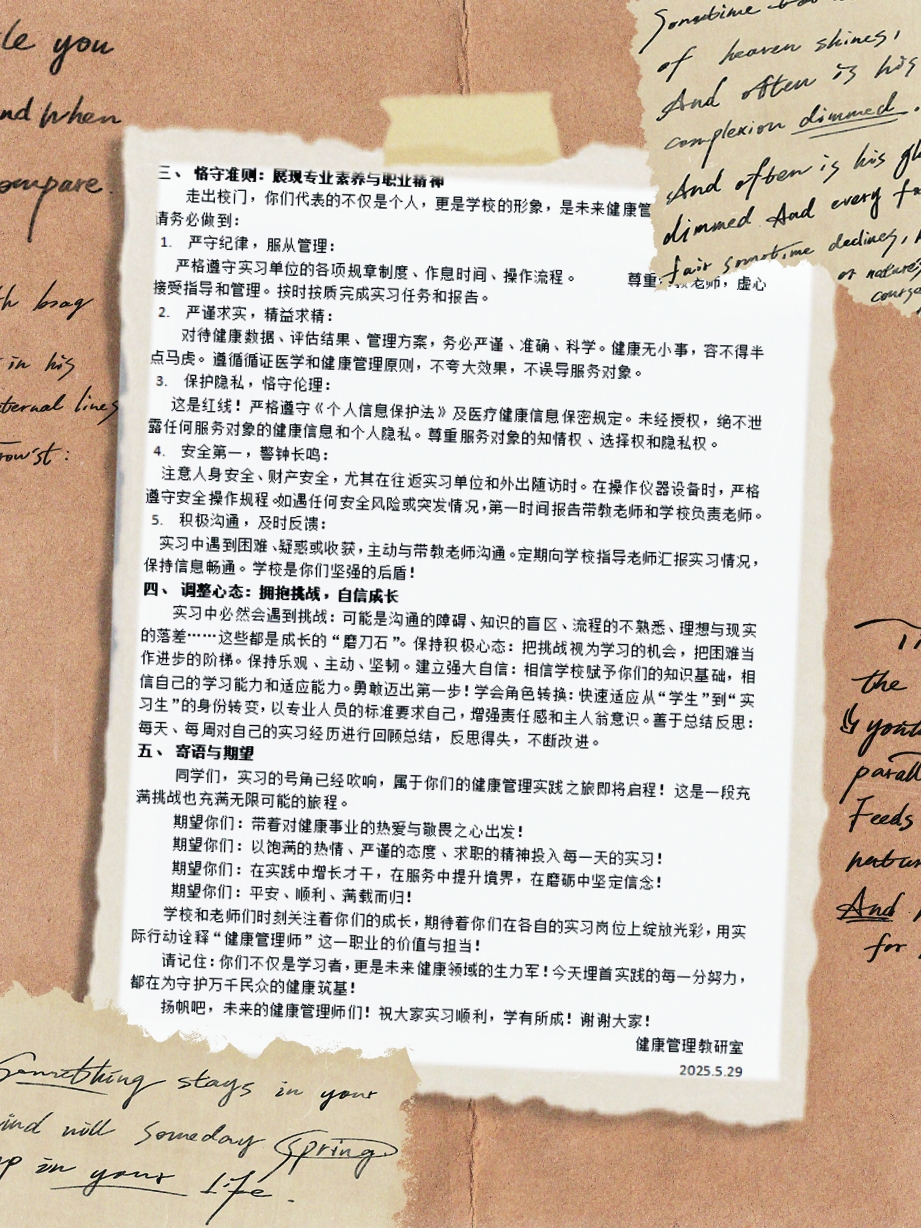 le you
nd when
compare.
Sometime
of heaven shines,
And often is his
complexion dimmed.
And often is his
dimmed And every
fair sometime declines,
or nature
course
三、 恪守准则：展现专业素养与职业精神
走出校门，你们代表的不仅是个人，更是学校的形象，是未来健康管
请务必做到：
1. 严守纪律，服从管理：
严格遵守实习单位的各项规章制度、作息时间、操作流程。 尊重 老师，虚心
接受指导和管理。按时按质完成实习任务和报告。
2. 严谨求实，精益求精：
对待健康数据、评估结果、管理方案，务必严谨、准确、科学。健康无小事，容不得半
点马虎。遵循循证医学和健康管理原则，不夸大效果，不误导服务对象。
3. 保护隐私，恪守伦理：
这是红线！严格遵守《个人信息保护法》及医疗健康信息保密规定。未经授权，绝不泄
露任何服务对象的健康信息和个人隐私。尊重服务对象的知情权、选择权和隐私权。
4. 安全第一，警钟长鸣：
注意人身安全、财产安全，尤其在往返实习单位和外出随访时。在操作仪器设备时，严格
遵守安全操作规程。如遇任何安全风险或突发情况，第一时间报告带教老师和学校负责老师。
5. 积极沟通，及时反馈：
实习中遇到困难、疑惑或收获，主动与带教老师沟通。定期向学校指导老师汇报实习情况，
保持信息畅通。学校是你们坚强的后盾！
四、 调整心态：拥抱挑战，自信成长
实习中必然会遇到挑战：可能是沟通的障碍、知识的盲区、流程的不熟悉、理想与现实
的落差……这些都是成长的“磨刀石”。保持积极心态：把挑战视为学习的机会，把困难当
作进步的阶梯。保持乐观、主动、坚韧。建立强大自信：相信学校赋予你们的知识基础，相
信自己的学习能力和适应能力。勇敢迈出第一步！学会角色转换：快速适应从“学生”到“实
习生”的身份转变，以专业人员的标准要求自己，增强责任感和主人翁意识。善于总结反思：
每天、每周对自己的实习经历进行回顾总结，反思得失，不断改进。
五、 寄语与期望
同学们，实习的号角已经吹响，属于你们的健康管理实践之旅即将启程！这是一段充
满挑战也充满无限可能的旅程。
期望你们：带着对健康事业的热爱与敬畏之心出发！
期望你们：以饱满的热情、严谨的态度、求职的精神投入每一天的实习！
期望你们：在实践中增长才干，在服务中提升境界，在磨砺中坚定信念！
期望你们：平安、顺利、满载而归！
学校和老师们时刻关注着你们的成长，期待着你们在各自的实习岗位上绽放光彩，用实
际行动诠释“健康管理师”这一职业的价值与担当！
请记住：你们不仅是学习者，更是未来健康领域的生力军！今天埋首实践的每一分努力，
都在为守护万千民众的健康筑基！
扬帆吧，未来的健康管理师们！祝大家实习顺利，学有所成！谢谢大家！
健康管理教研室
2025.5.29
brag
in his
eternal lines
grow'st:
the
youth
parall
Feeds
natur
And
for
Something stays in your
mind will someday spring
up in your life.